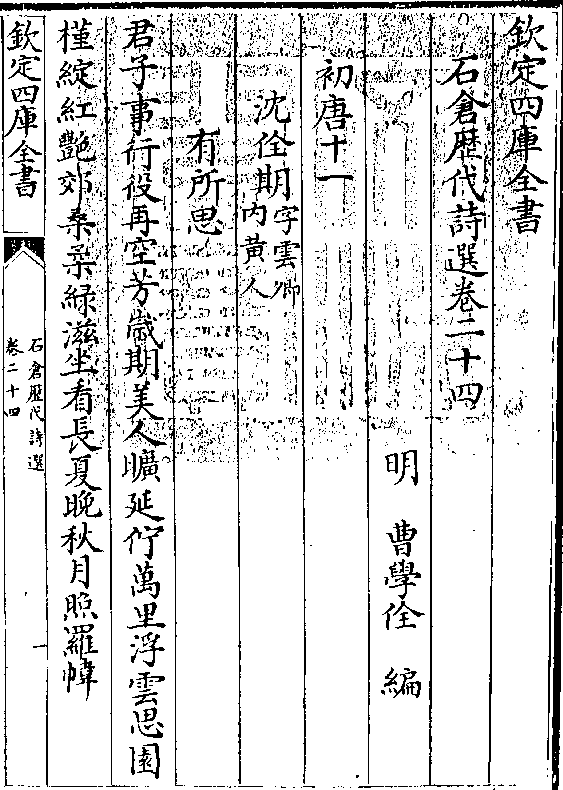 欽定四庫全書
石倉歷代詩選卷二十四
明 曹學佺 編
初唐十一
沈佺期字雲卿
内黄人
有所思
君子事行役再空芳歲期美人曠延佇萬里浮雲思園
槿綻紅艷郊桑柔緑滋坐看長夏晚秋月照羅幃
欽定四庫全書
石倉歷代詩選
卷二十四
一